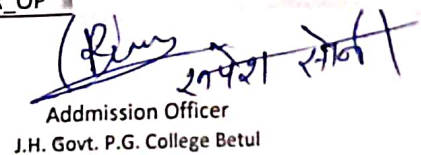 _OP
रूपेश सोनी
Addmission Officer
J.H. Govt. P.G. College Betul